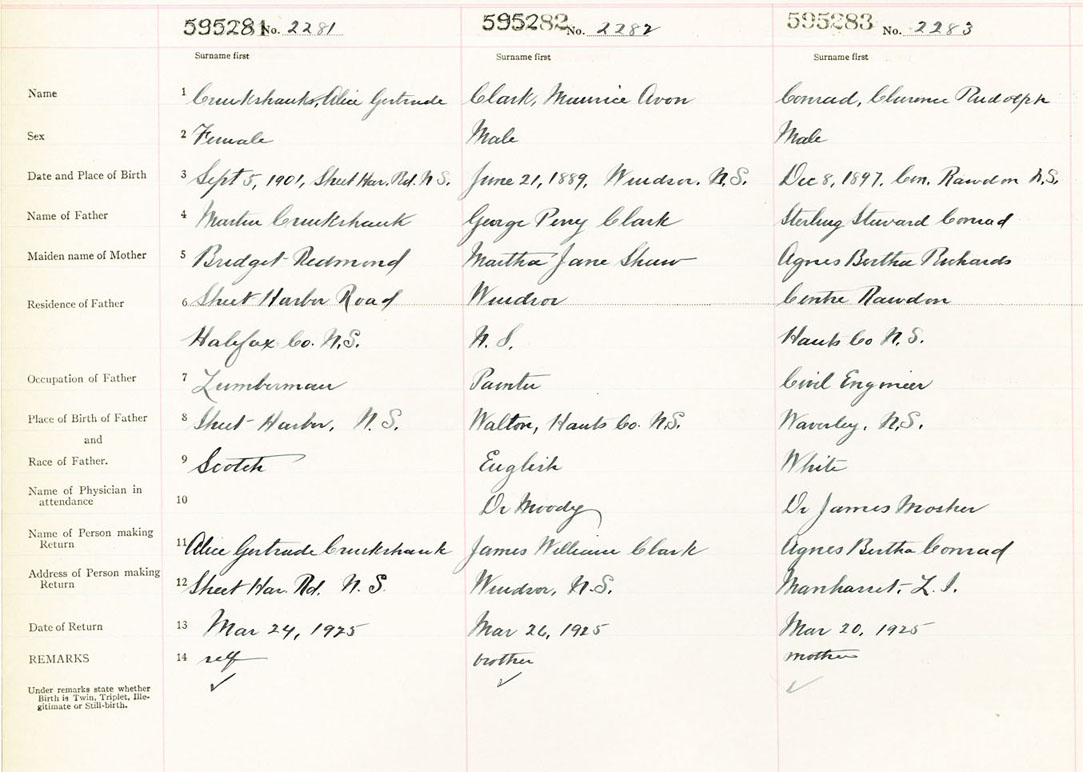 595281 No. 2281 595282 No. 2282 595283 No. 2283
Surname first Surname first Surname first
Name 1 Cruikshanks, Alice Gertrude Clark, Maurice Avon Conrad, Clarence Rudolph
Sex 2 Female Male Male
Date and Place of Birth 3 Sept 5, 1901, Sheet Har. Rd. N.S. June 21, 1889, Windsor. N.S. Dec 8, 1897. Cen. Rawdon N.S.
Name of Father 4 Martin Cruikshank George Perry Clark Sterling Steward Conrad
Maiden name of Mother 5 Bridget Redmond Martha Jane Shaw Agnes Bertha Richards
Residence of Father 6 Sheet Harbor Road Windsor Centre Rawdon
Halifax Co. N.S. N.S. Hants Co N.S.
Occupation of Father 7 Lumberman Painter Civil Engineer
Place of Birth of Father 8 Sheet Harbor, N.S. Walton, Hants Co. N.S. Waverley, N.S.
and
Race of Father. 9 Scotch English White
Name of Physician in
attendance 10 Dr Moody Dr James Mosher
Name of Person making
Return 11 Alice Gertrude Cruikshank James William Clark Agnes Bertha Conrad
Address of Person making
Return 12 Sheet Har. Rd. N.S. Windsor, N.S. Manhasset, L.I.
Date of Return 13 Mar 24, 1925 Mar 26, 1925 Mar 20, 1925
REMARKS 14 self brother mother
Under remarks state whether
Birth is Twin, Triplet, Ille-
gitimate or Still-birth.